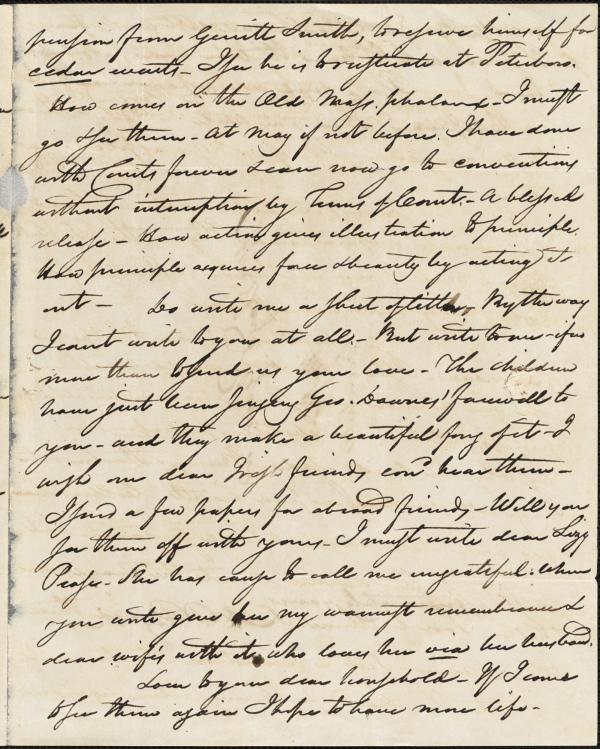 pension from Gerritt Smith, to reserve himself for
cedar swails - I see he is to rusticate at Peterboro.
How comes on the Old Mass. phalanx - I must
go & see them - at May if not before. I have done
with Courts forever & can now go to conventions
without interruption by Terms of Court. - A blessed
release - How action gives illustration to principle.
How principle acquires force & beauty by acting it
out - Do write me a sheet of letter, By the way
I cant write to you at all. - But write to me - if no
more than to send us your love - The children
have just been singing Geo. Downes' farewell to
you - and they make a beautiful song of it - I
wish our dear Irish friends coud hear them -
I send a few papers for abroad friends - Will you
send them off with yours - I must write dear Lizzy
Pease. She has cause to call me ungrateful. When
you write give her my warmest remembrance &
dear wife's with it, who loves her via her husband.
Love to your dear household - If I come
to see them again I hope to have more life -